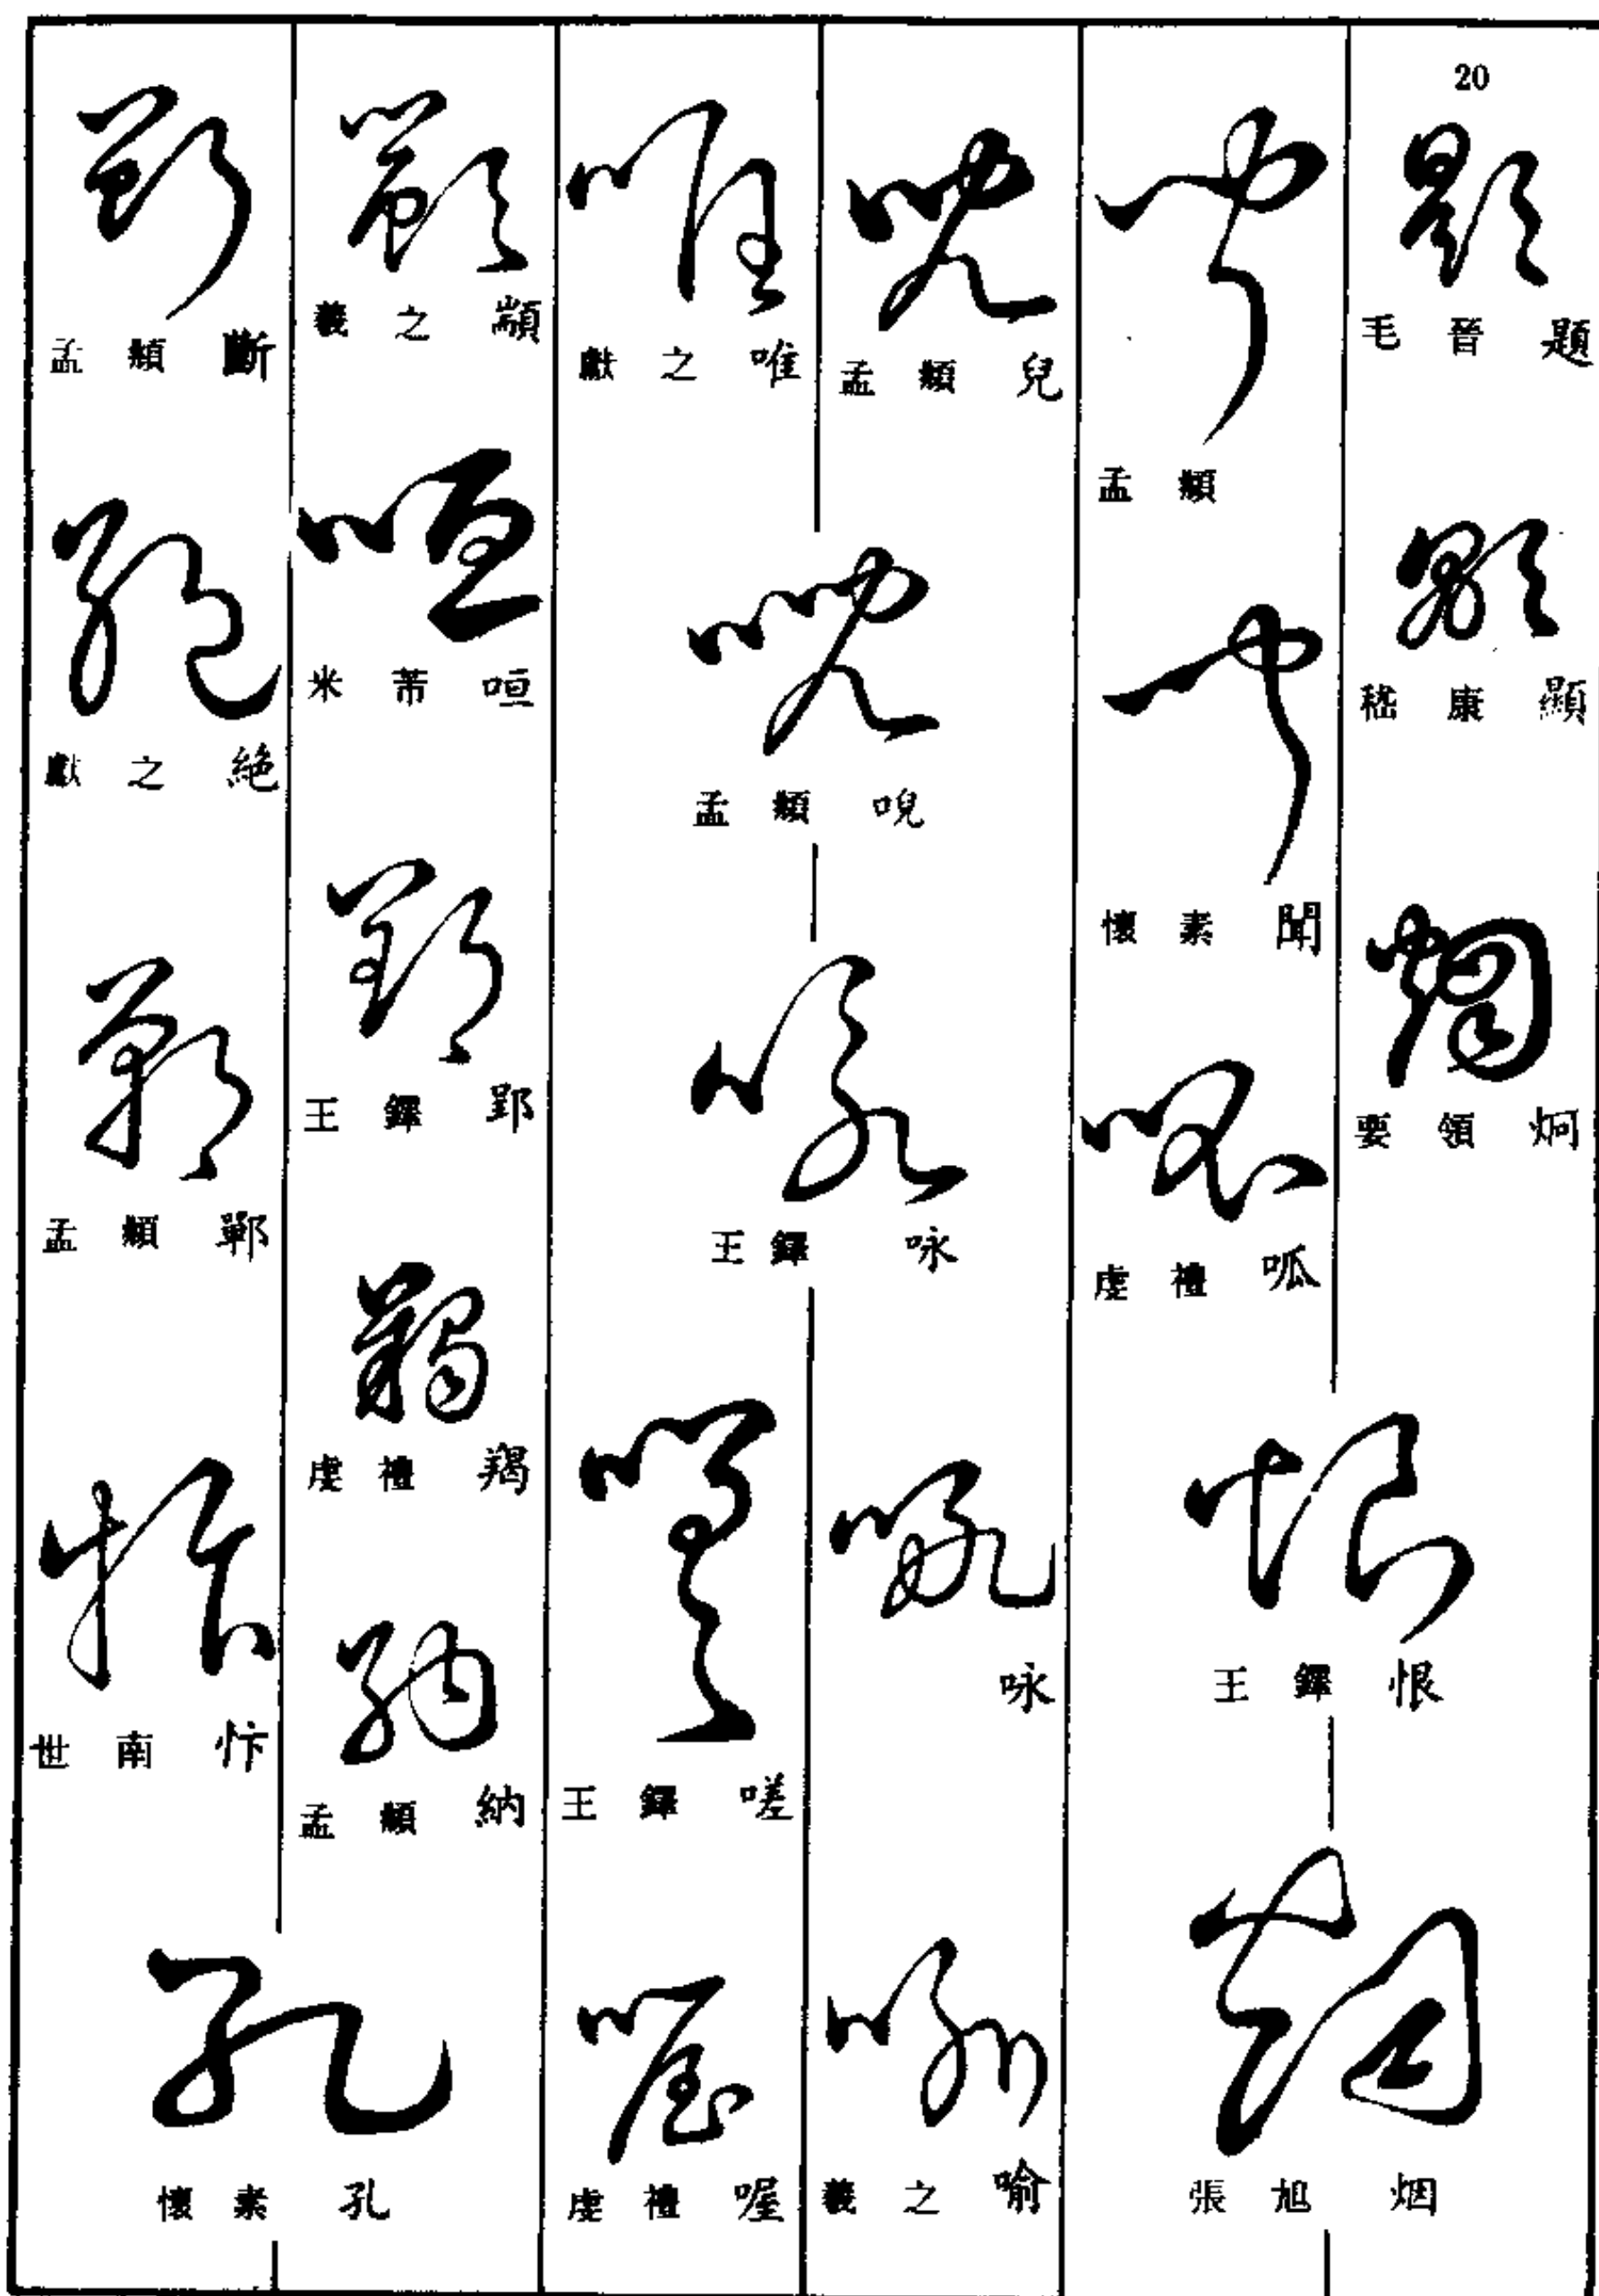 20
毛晉 題
嵇康 顯
要領 炯
孟頫
懷素 聞
虔禮 呱
王鐸 恨
張旭 烟
孟頫 兒
孟頫 唲
王鐸 咏
咏
羲之 喻
獻之 唯
王鐸 嗟
虔禮 喔
羲之 顓
米芾 咺
王鐸 郢
虔禮 羯
孟頫 納
孟頫 斷
獻之 絶
孟頫 鄲
世南 忭
懷素 孔